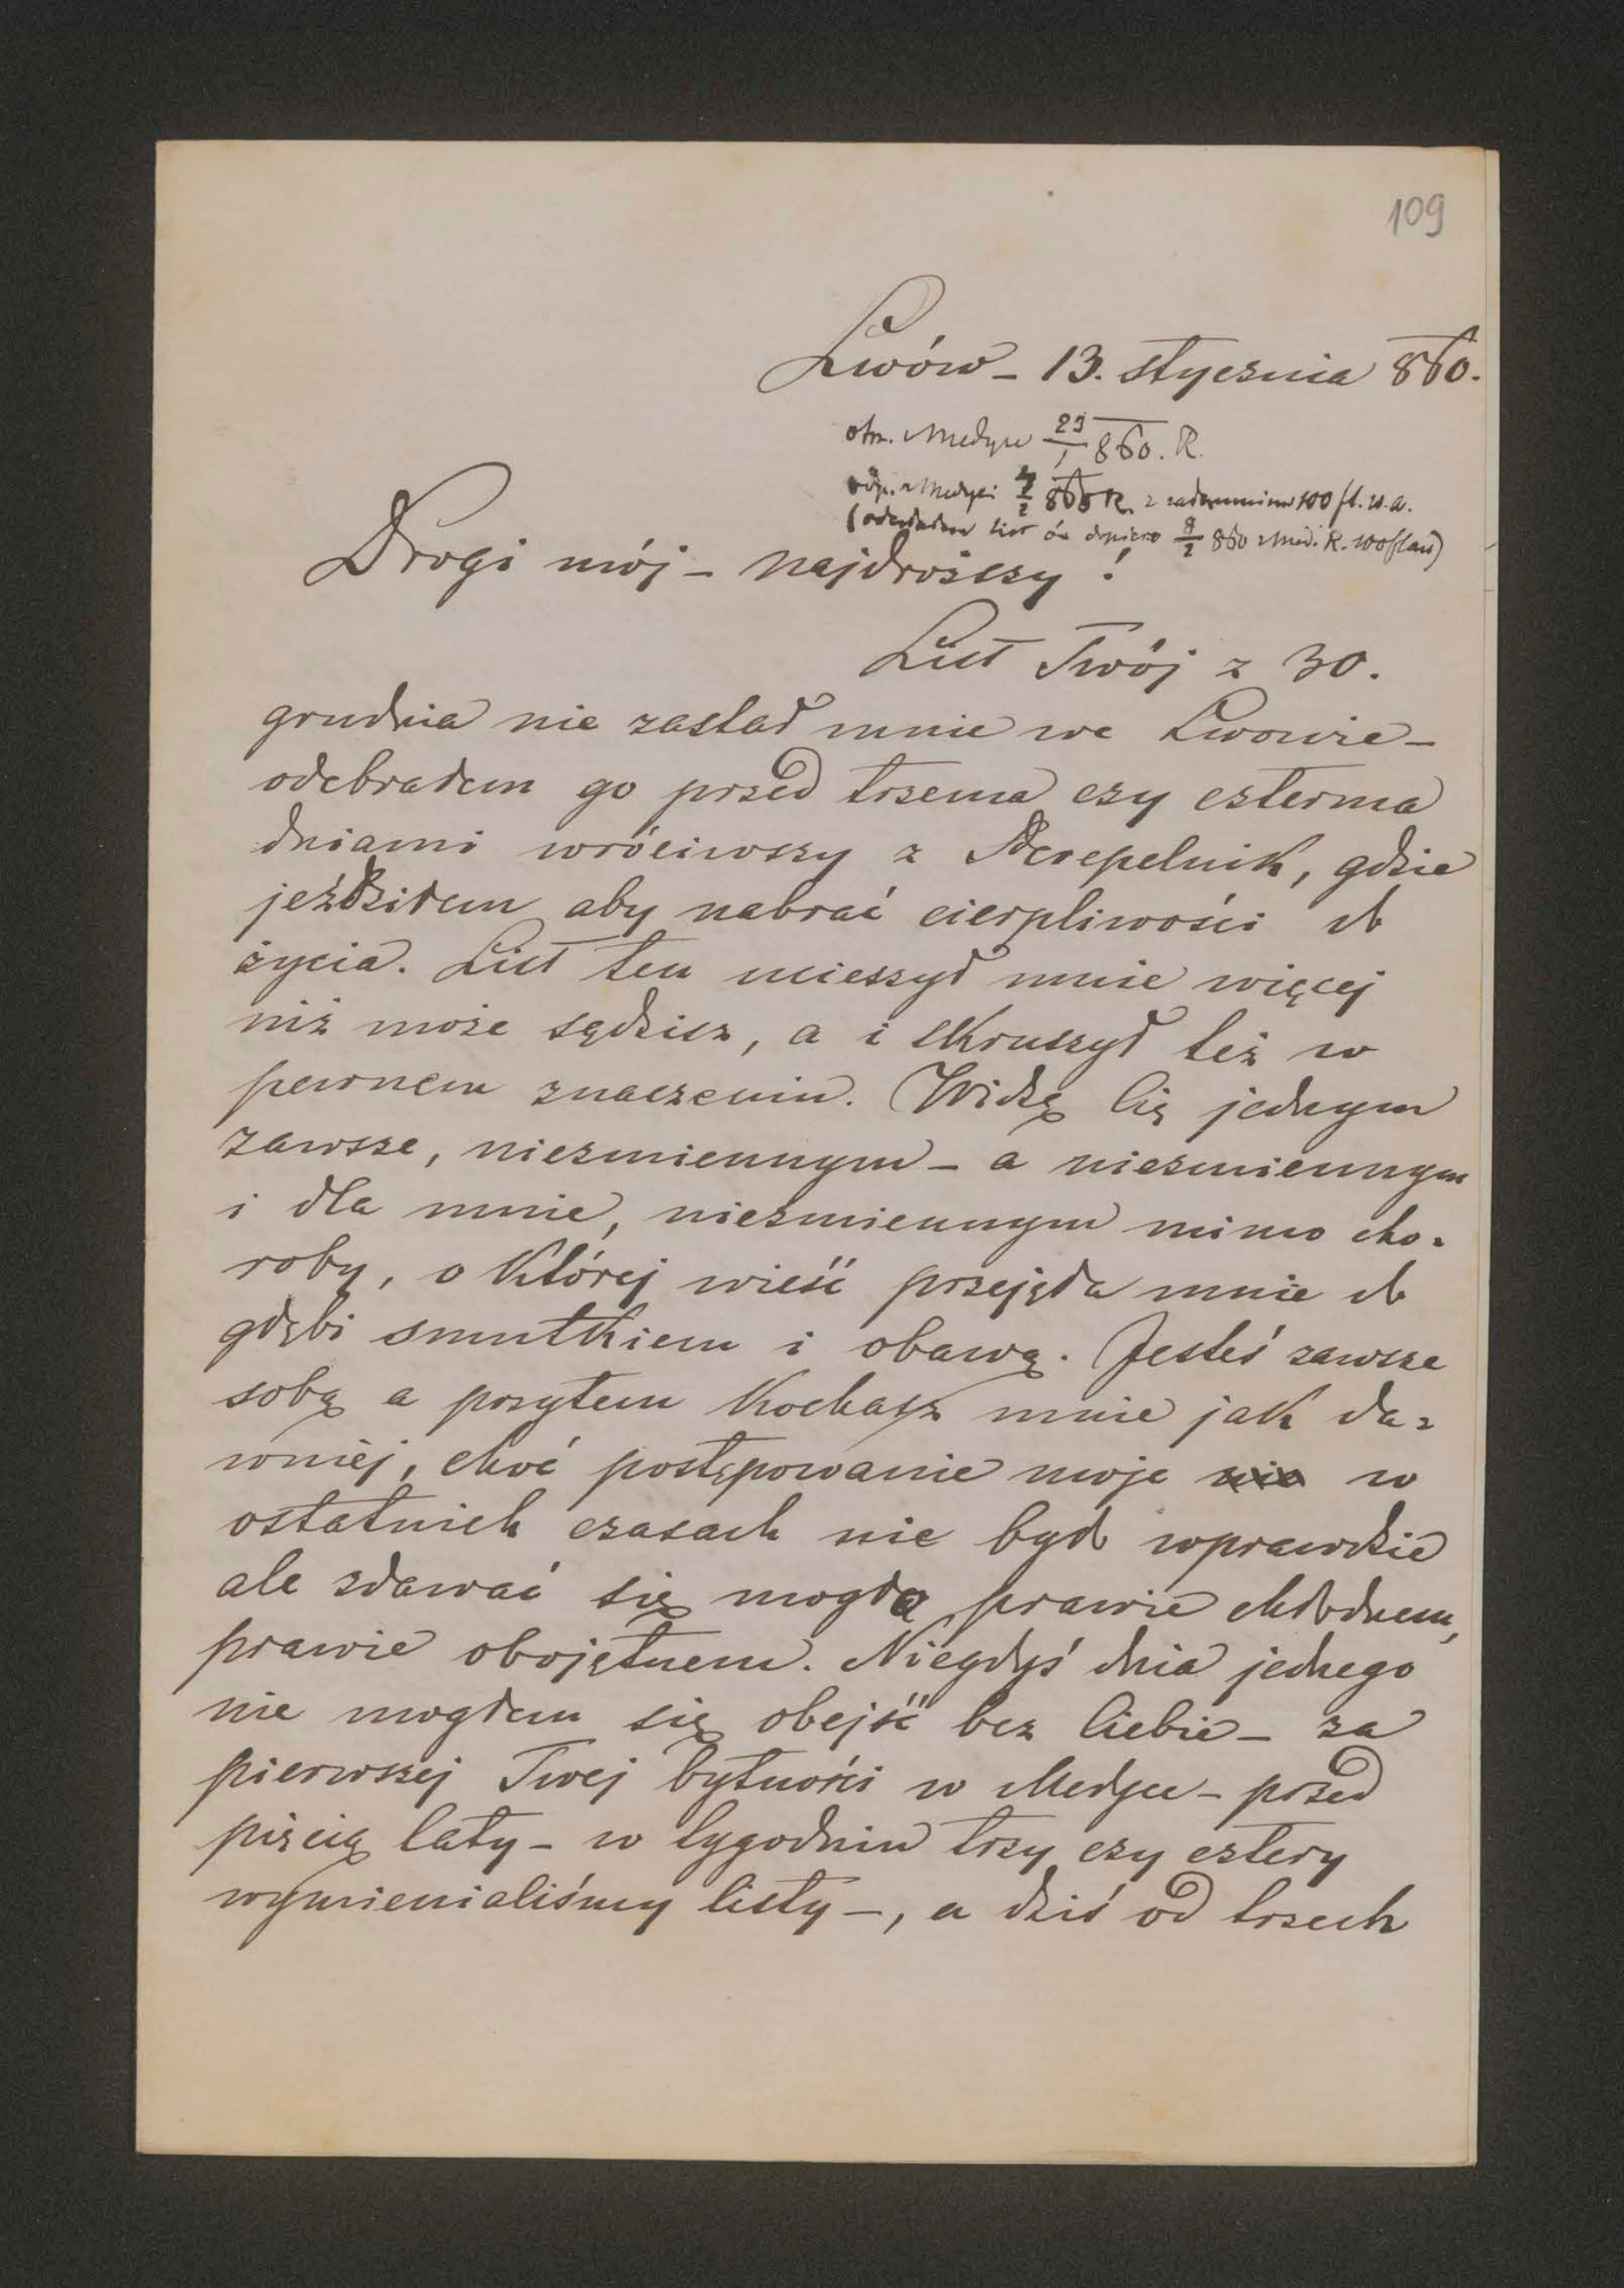 109
Lwów – 13. stycznia 860.
otr. Medyce 29/1 860. R.
odp. z Medyki 4/2 860 R. z 100 fl. w. a.
(odesłałem list ów dopiero 8/2 860 z Med. R. 100 fl aus)
Drogi mój – najdroższy!
List Twój z 30.
grudnia nie zastał mnie we Lwowie –
odebrałem go przed trzema czy czterma
dniami wróciwszy z Perepelnik, gdzie
jeździłem aby nabrać cierpliwości do
życia. List ten ucieszył mnie więcej
niż może sądzisz, a i skruszył też w
pewnem znaczeniu. Widzę Cię jednym
zawsze, niezmiennym – a niezmiennym
i dla mnie, niezmiennym mimo cho-
roby, o której wieść przejęła mnie do
głębi smutkiem i obawą. Jesteś zawsze
sobą a przytem kochasz mnie jak da-
wniej, choć postępowanie moje nie w
ostatnich czasach nie było wprawdzie
ale zdawać się mogło prawie chłodnem,
prawie obojętnem. Niegdyś dnia jednego
nie mogłem się obejść bez Ciebie – za
pierwszej Twej bytności w Medyce – przed
pięcią laty – w tygodniu trzy czy cztery
wymienialiśmy listy –, a dziś od trzech